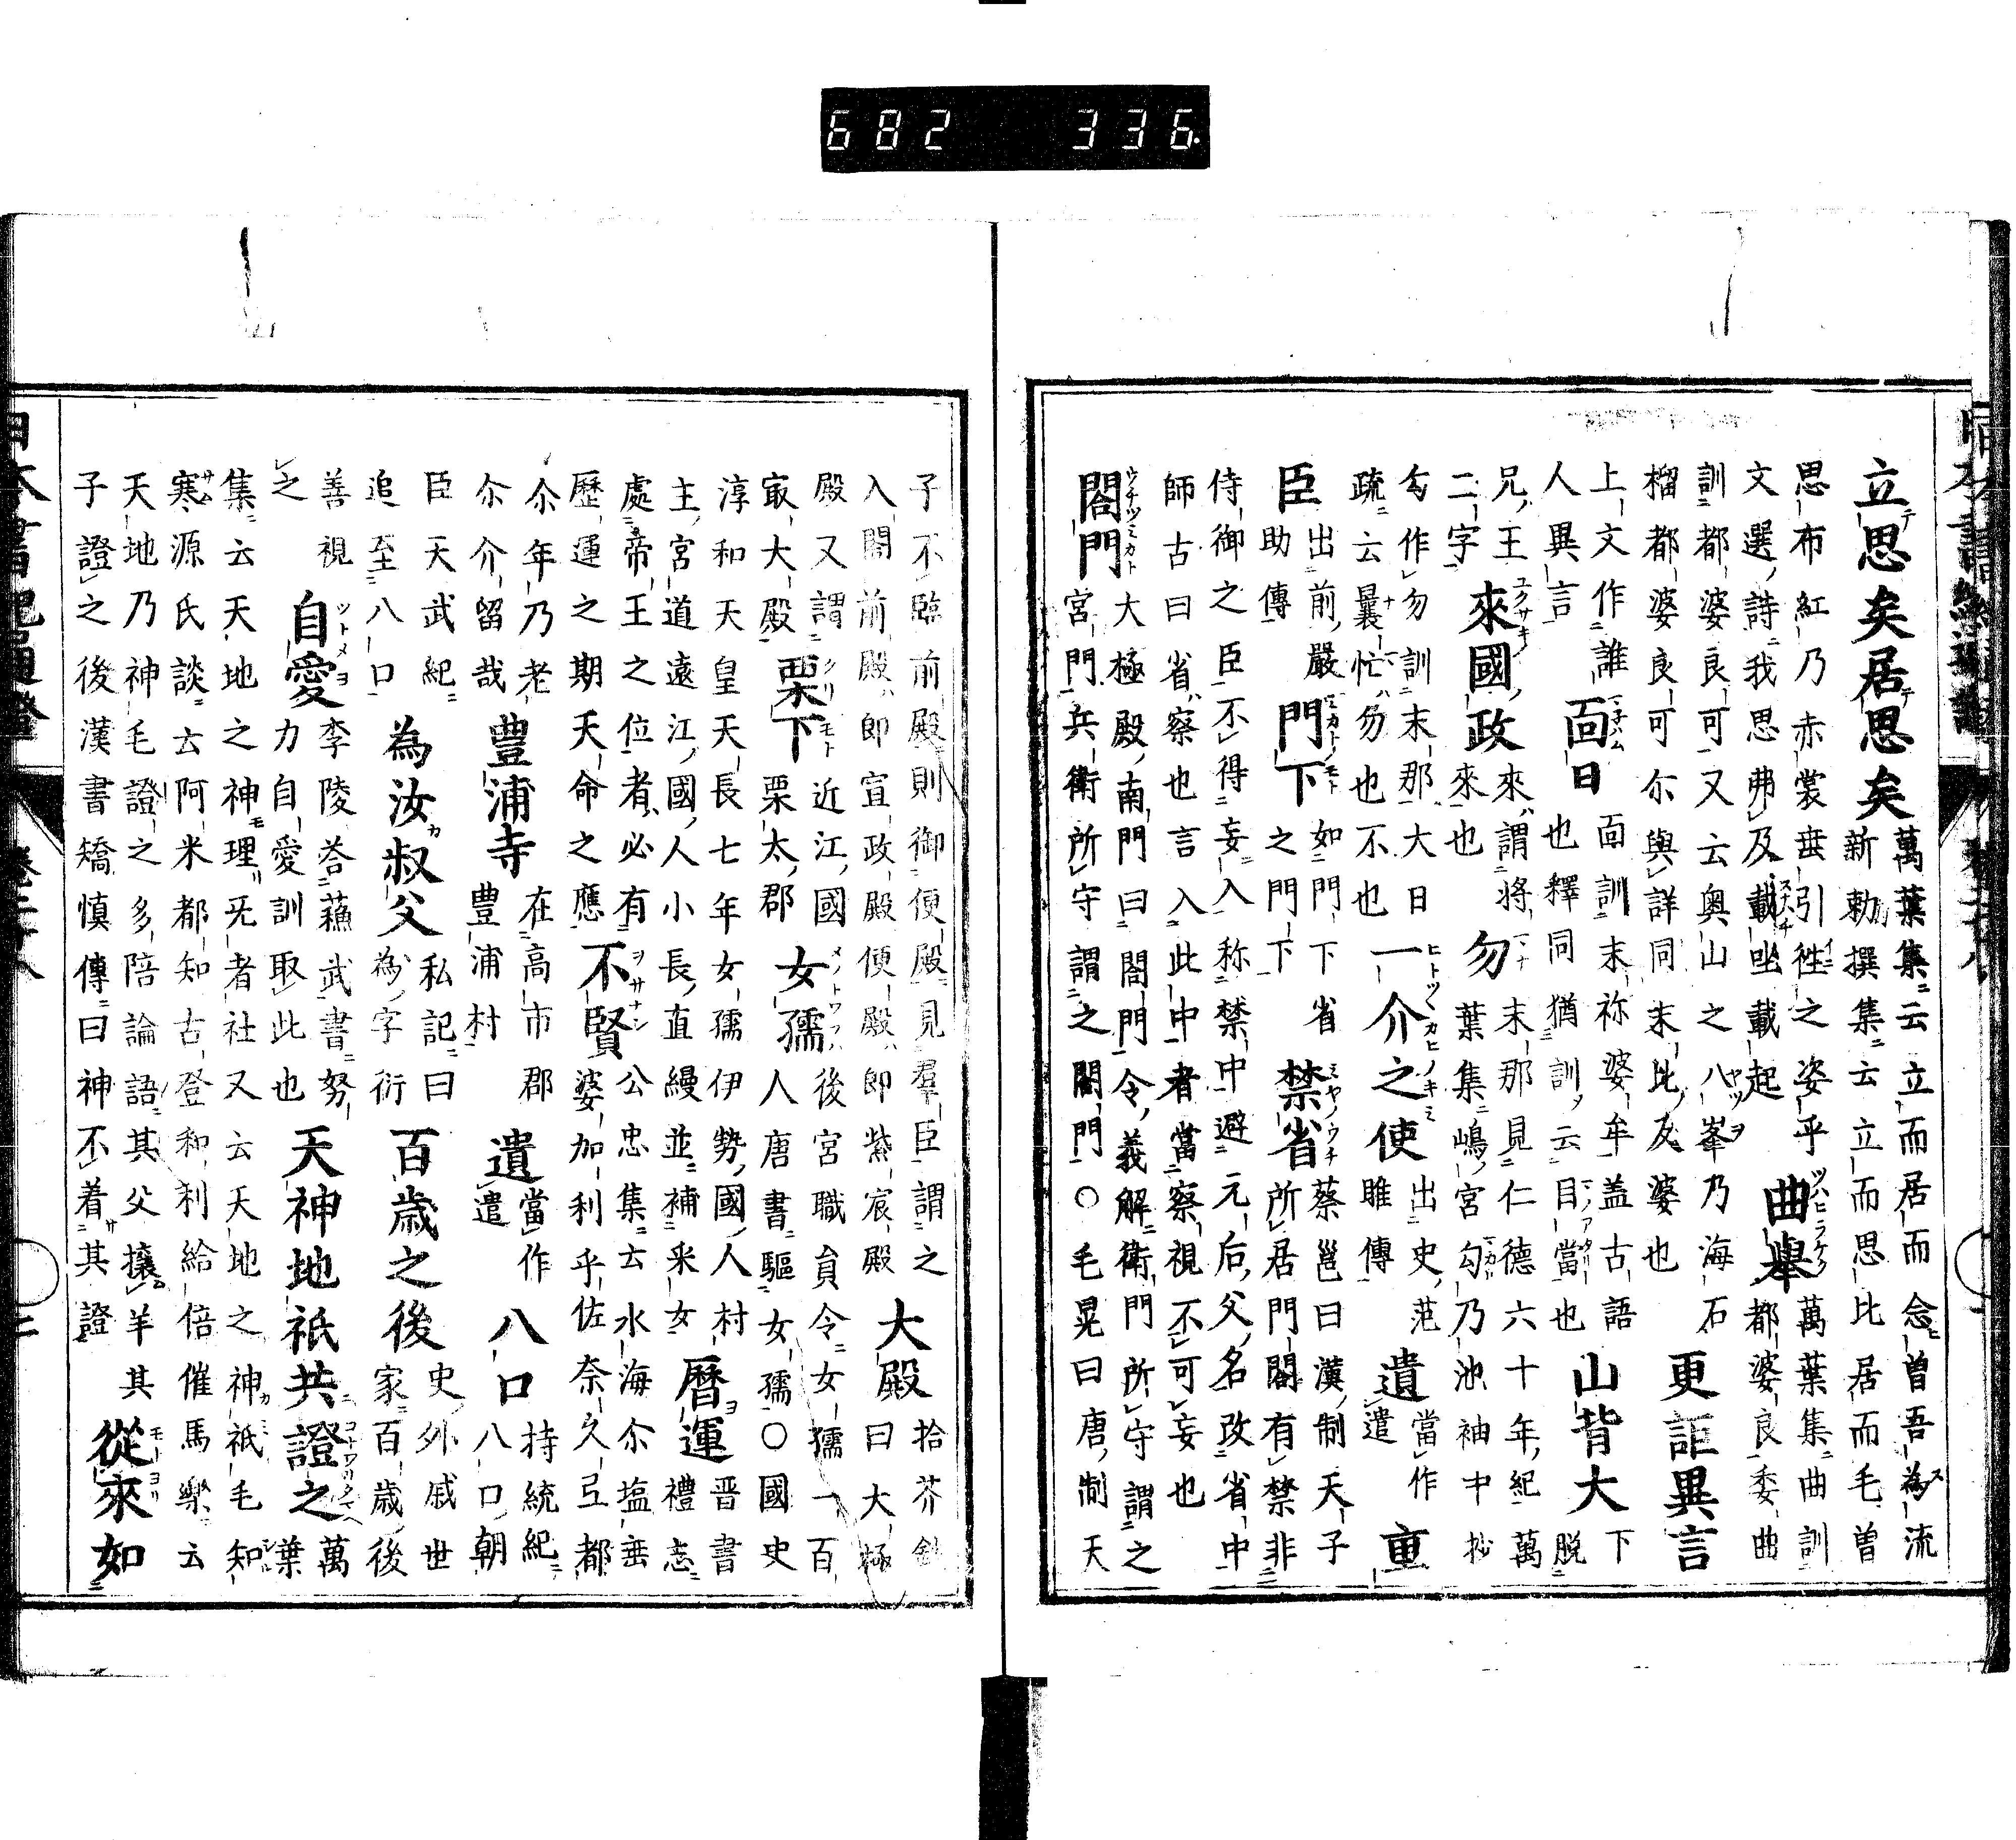 682 336
立思矣居思矣 萬葉集云立而居而念曽吾為流
新勅撰集云立而思比居而毛曽
思布紅乃赤裳垂引徃之姿乎 曲擧 萬葉集曲訓
都婆良委曲
文選詩我思弗及載坐載起
訓都婆良可又云奥山之八峯乃海石
榴都婆良可尓與詳同末比反婆也 更詎異言
上文作誰 面曰 面訓末祢婆牟盖古語
也釋同猶訓云目當也 山背大 下
脱
人異言
兄王 來國政 來謂將
來也 勿 末那見仁德六十年紀萬
葉集嶋宮勾乃池袖中抄
二字
勾作勿訓末那大日
疏云曩忙勿也不也 一介之使 出史范
雎傳 遺 當作
遣 重
臣 出前嚴
助傳 門下 如門下省
之門下 禁省 蔡邕曰漢制天子
所居門閤有禁非
侍御之臣不得妄入称禁中避元后父名改省中
師古曰省察也言入此中者當察視不可妄也
閤門 大極殿南門曰閤門門令義解衛門所守謂之
宮門兵衛所守謂之閤門○毛晃曰唐制天
子不臨前殿則御便殿見羣臣謂之
入閤前殿即宣政殿便殿即紫宸殿 大殿 拾芥鈔
曰大極
殿又謂 栗下 近江國
栗太郡 女孺 後宮職員令女孺一百
人唐書驅女孺○國史
㝡大殿
淳和天皇天長七年女孺伊勢國人村
主宮道遠江國人小長直縵並補采女 暦運 晋書
禮志
處帝王之位者必有
歷運之期天命之應 不賢 公忠集云水海尓塩垂
婆加利乎佐奈久弖都
尓年乃老
尓介留哉 豊浦寺 在高市郡
豊浦村 遺 當作
遣 八口 持統紀
八口朝
臣天武紀
追至八口 為汝叔父 私記曰
為字衍 百歳之後 史外戚世
家百歳後
善視
之 自愛 李陵荅蘓武書努
力自愛訓取此也 天神地祇共證之 萬
葉
集云天地之神理无者社又云天地之神祇毛知
寒源氏談云阿米都知古登和利給倍催馬樂云
天地乃神毛證之多陪論語其父攘羊其
子證之後漢書矯慎傳曰神不着其證 從來如